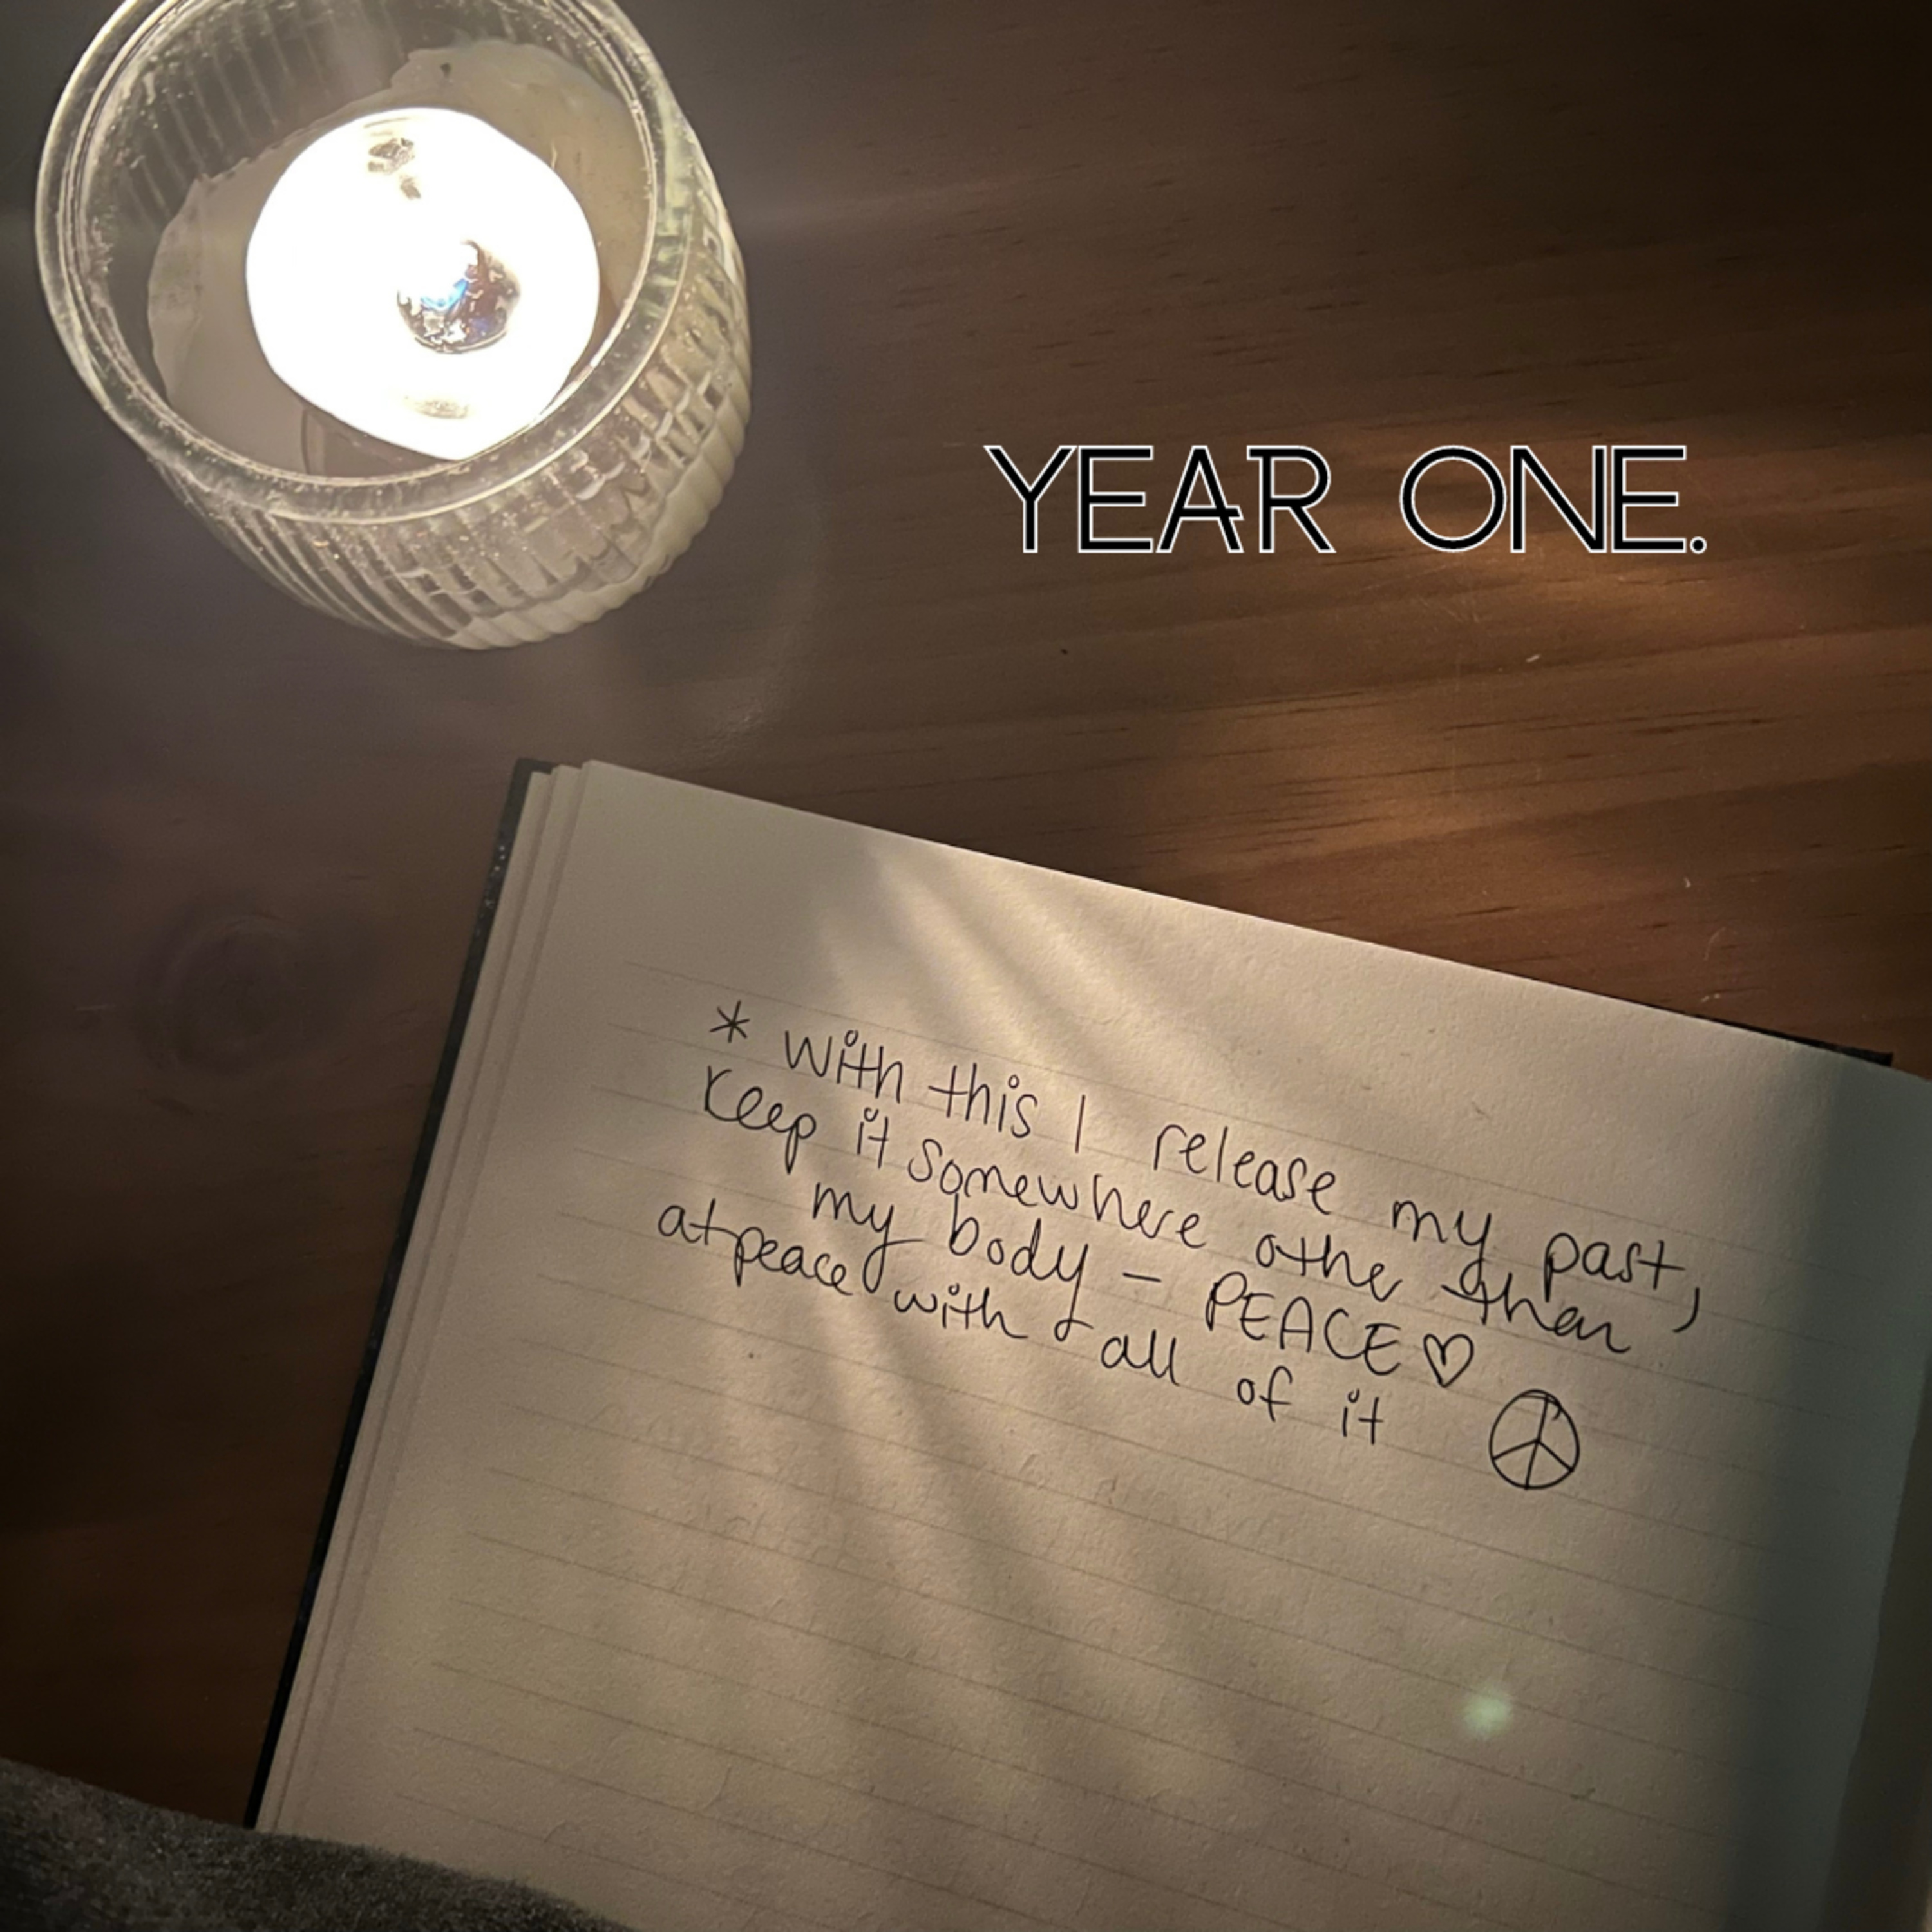 YEAR ONE.
* with this I release my past,
Keep it somewhere other than
my body - PEACE♡
at peace with & all of it